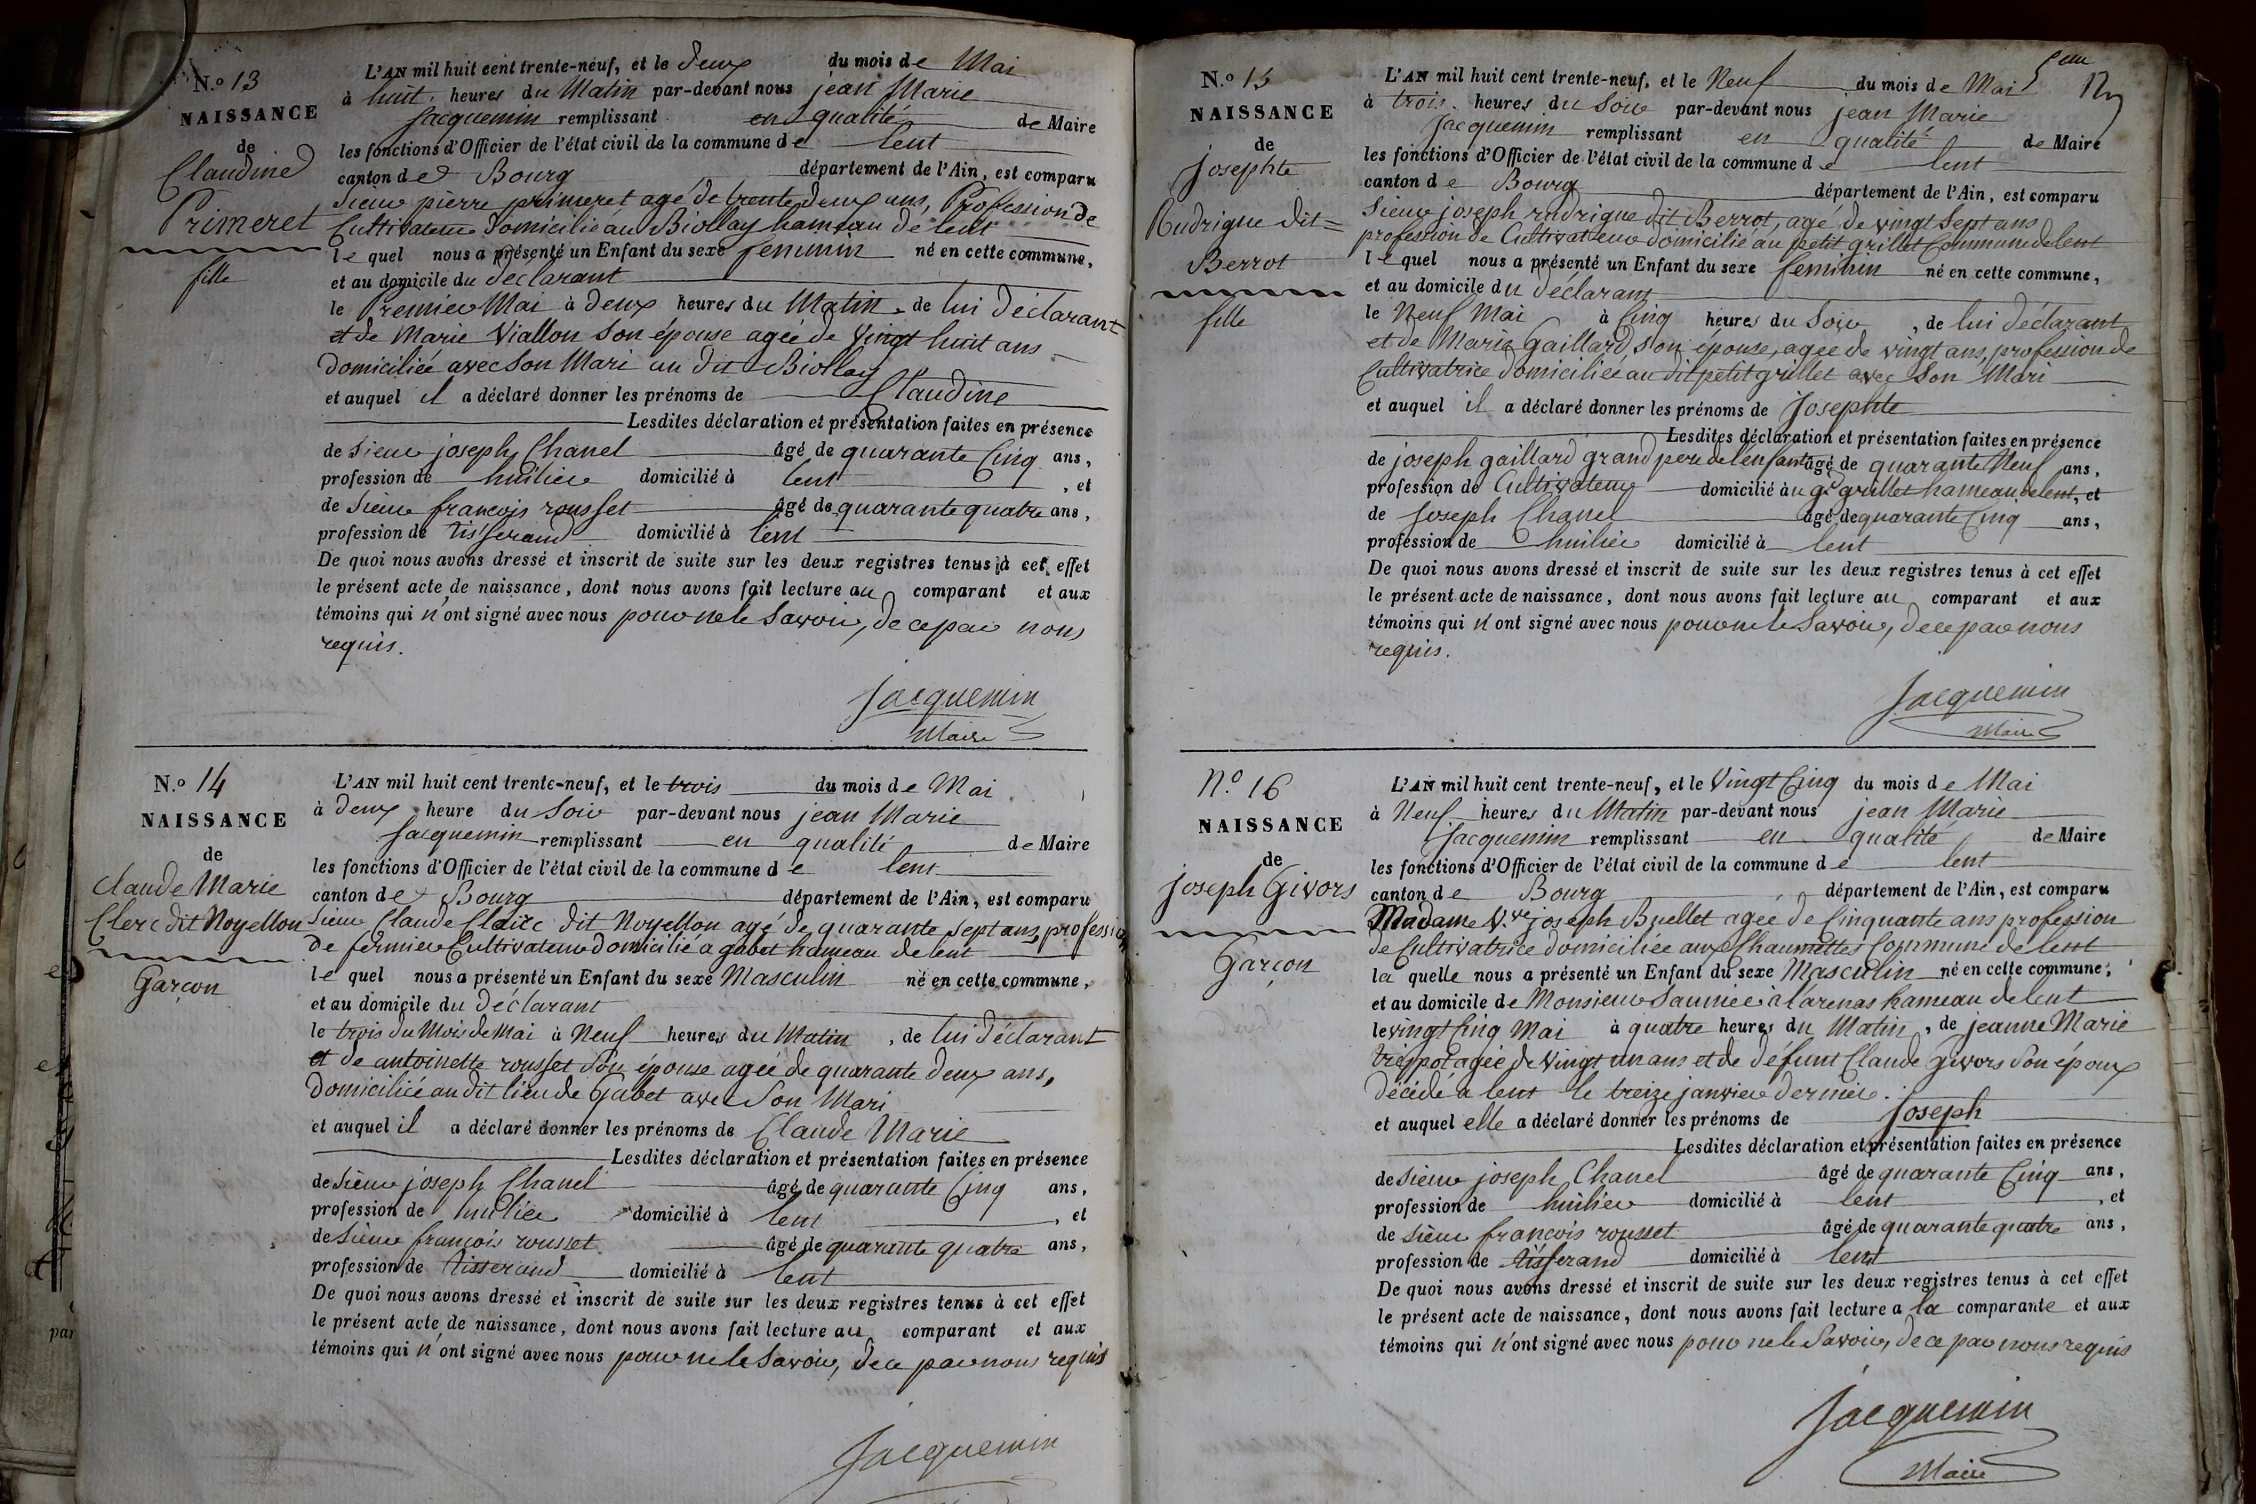 N.o 13
NAISSANCE
de
Claudine
Primeret
fille
L'AN mil huit cent trente-neuf, et le deux du mois de Mai
à huit heures du Matin par-devant nous jean Marie
Jacquemin remplissant en qualité de Maire
les fonctions d'Officier de l'état civil de la commune de lent
canton de Bourg département de l'Ain, est comparu
Sieur pierre primeret agé de trente deux ans, Profession de
Cultivateur domicilié au Biollay hameau de lent
le quel nous a présenté un Enfant du sexe feminin né en cette commune,
et au domicile du déclarant
le Premier Mai à deux heures du Matin, de lui déclarant
et de Marie Viallon son épouse agée de Vingt huit ans
domiciliée avec son Mari au dit Biollay
et auquel il a déclaré donner les prénoms de Claudine
Lesdites déclaration et présentation faites en présence
de Sieur joseph Chanel âgé de quarante Cinq ans,
profession de huilier domicilié à lent, et
de Sieur françois rousset âgé de quarante quatre ans,
profession de tisserand domicilié à lent
De quoi nous avons dressé et inscrit de suite sur les deux registres tenus à cet effet
le présent acte de naissance, dont nous avons fait lecture au comparant et aux
témoins qui n'ont signé avec nous pour ne le Savoir, de ce par nous
requis.
Jacquemin
Maire
N.o 14
NAISSANCE
de
Claude Marie
Clerc dit Noyellon
Garçon
L'AN mil huit cent trente-neuf, et le trois du mois de Mai
à deux heure du Soir par-devant nous jean Marie
Jacquemin remplissant en qualité de Maire
les fonctions d'Officier de l'état civil de la commune de lent
canton de Bourg département de l'Ain, est comparu
Sieur Claude Clerc dit Noyellon agé de quarante sept ans, profession
de fermier Cultivateur domicilié a gabet hameau de lent
le quel nous a présenté un Enfant du sexe Masculin né en cette commune,
et au domicile du déclarant
le trois du Mois de Mai à Neuf heures du Matin, de lui déclarant
et de antoinette rousset son épouse agée de quarante deux ans,
domiciliée au dit lieu de Gabet avec Son Mari
et auquel il a déclaré donner les prénoms de Claude Marie
Lesdites déclaration et présentation faites en présence
de Sieur joseph Chanel âgé de quarante Cinq ans,
profession de huilier domicilié à lent, et
de Sieur françois rousset âgé de quarante quatre ans,
profession de tisserand domicilié à lent
De quoi nous avons dressé et inscrit de suite sur les deux registres tenus à cet effet
le présent acte de naissance, dont nous avons fait lecture au comparant et aux
témoins qui n'ont signé avec nous pour ne le Savoir, de ce par nous requis
Jacquemin
N.o 15
NAISSANCE
de
josephte
Rudrigue dit=
Berrot
fille
L'AN mil huit cent trente-neuf, et le Neuf du mois de Mai
à trois heures du Soir par-devant nous jean Marie
Jacquemin remplissant en qualité de Maire
les fonctions d'Officier de l'état civil de la commune de lent
canton de Bourg département de l'Ain, est comparu
Sieur joseph rudrigue dit Berrot, agé de vingt sept ans
profession de Cultivateur domicilié au petit grillet Commune de lent
le quel nous a présenté un Enfant du sexe feminin né en cette commune,
et au domicile du déclarant
le Neuf Mai à Cinq heures du Soir, de lui déclarant
et de Marie Gaillard, son épouse, agée de vingt ans, profession de
Cultivatrice domiciliée au dit petit grillet avec Son Mari
et auquel il a déclaré donner les prénoms de Josephte
Lesdites déclaration et présentation faites en présence
de joseph gaillard grand pere de l'enfant âgé de quarante Neuf ans,
profession de Cultivateur domicilié au gd grillet hameau de lent, et
de Joseph Chanel âgé de quarante Cinq ans,
profession de huilier domicilié à lent
De quoi nous avons dressé et inscrit de suite sur les deux registres tenus à cet effet
le présent acte de naissance, dont nous avons fait lecture au comparant et aux
témoins qui n'ont signé avec nous pour ne le Savoir, de ce par nous
requis.
Jacquemin
Maire
N.o 16
NAISSANCE
de
joseph Givors
Garçon
L'AN mil huit cent trente-neuf, et le Vingt Cinq du mois de Mai
à Neuf heures du Matin par-devant nous jean Marie
Jacquemin remplissant en qualité de Maire
les fonctions d'Officier de l'état civil de la commune de lent
canton de Bourg département de l'Ain, est comparu
Madame Vve joseph Buellet agée de Cinquante ans profession
de Cultivatrice domiciliée aux Chaumettes Commune de lent
la quelle nous a présenté un Enfant du sexe Masculin né en cette commune,
et au domicile de Monsieur Saunier à larenas hameau de lent
le vingt Cinq Mai à quatre heures du Matin, de jeanne Marie
agée de Vingt un ans et de défunt Claude Givors Son époux
décédé a lent le treize janvier dernier.
et auquel elle a déclaré donner les prénoms de Joseph
Lesdites déclaration et présentation faites en présence
de Sieur joseph Chanel âgé de quarante Cinq ans,
profession de huilier domicilié à lent, et
de Sieur françois rousset âgé de quarante quatre ans,
profession de tisserand domicilié à lent
De quoi nous avons dressé et inscrit de suite sur les deux registres tenus à cet effet
le présent acte de naissance, dont nous avons fait lecture a la comparante et aux
témoins qui n'ont signé avec nous pour ne le Savoir, de ce par nous requis
Jacquemin
Maire